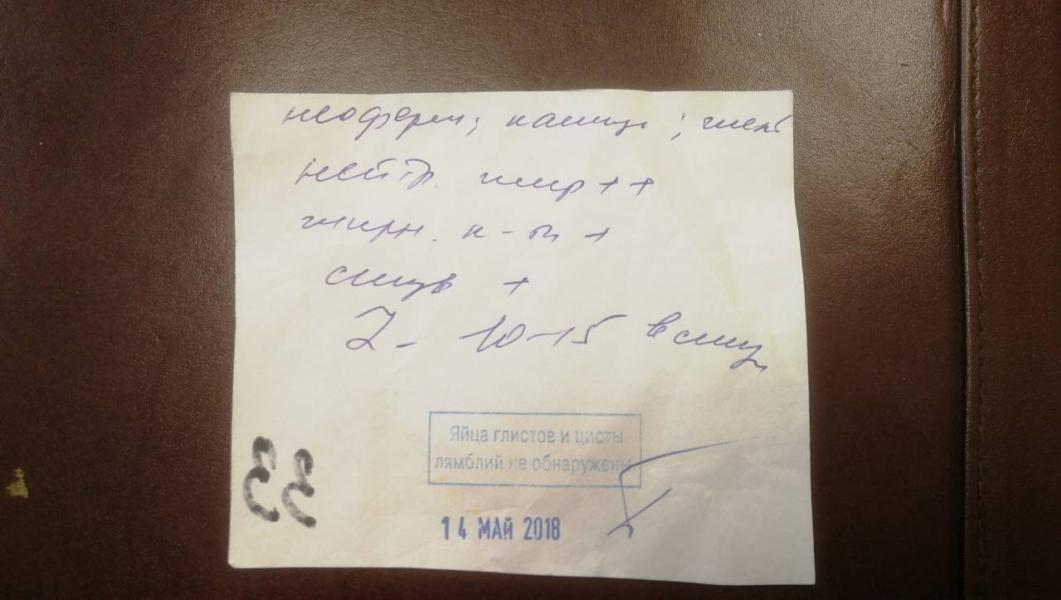 неоформ; кашиц; желт
нейтр. жир ++
жирн. к-ты +
слизь +
L - 10-15 в слиз
Яйца глистов и цисты
лямблий не обнаружены
14 МАЙ 2018
33